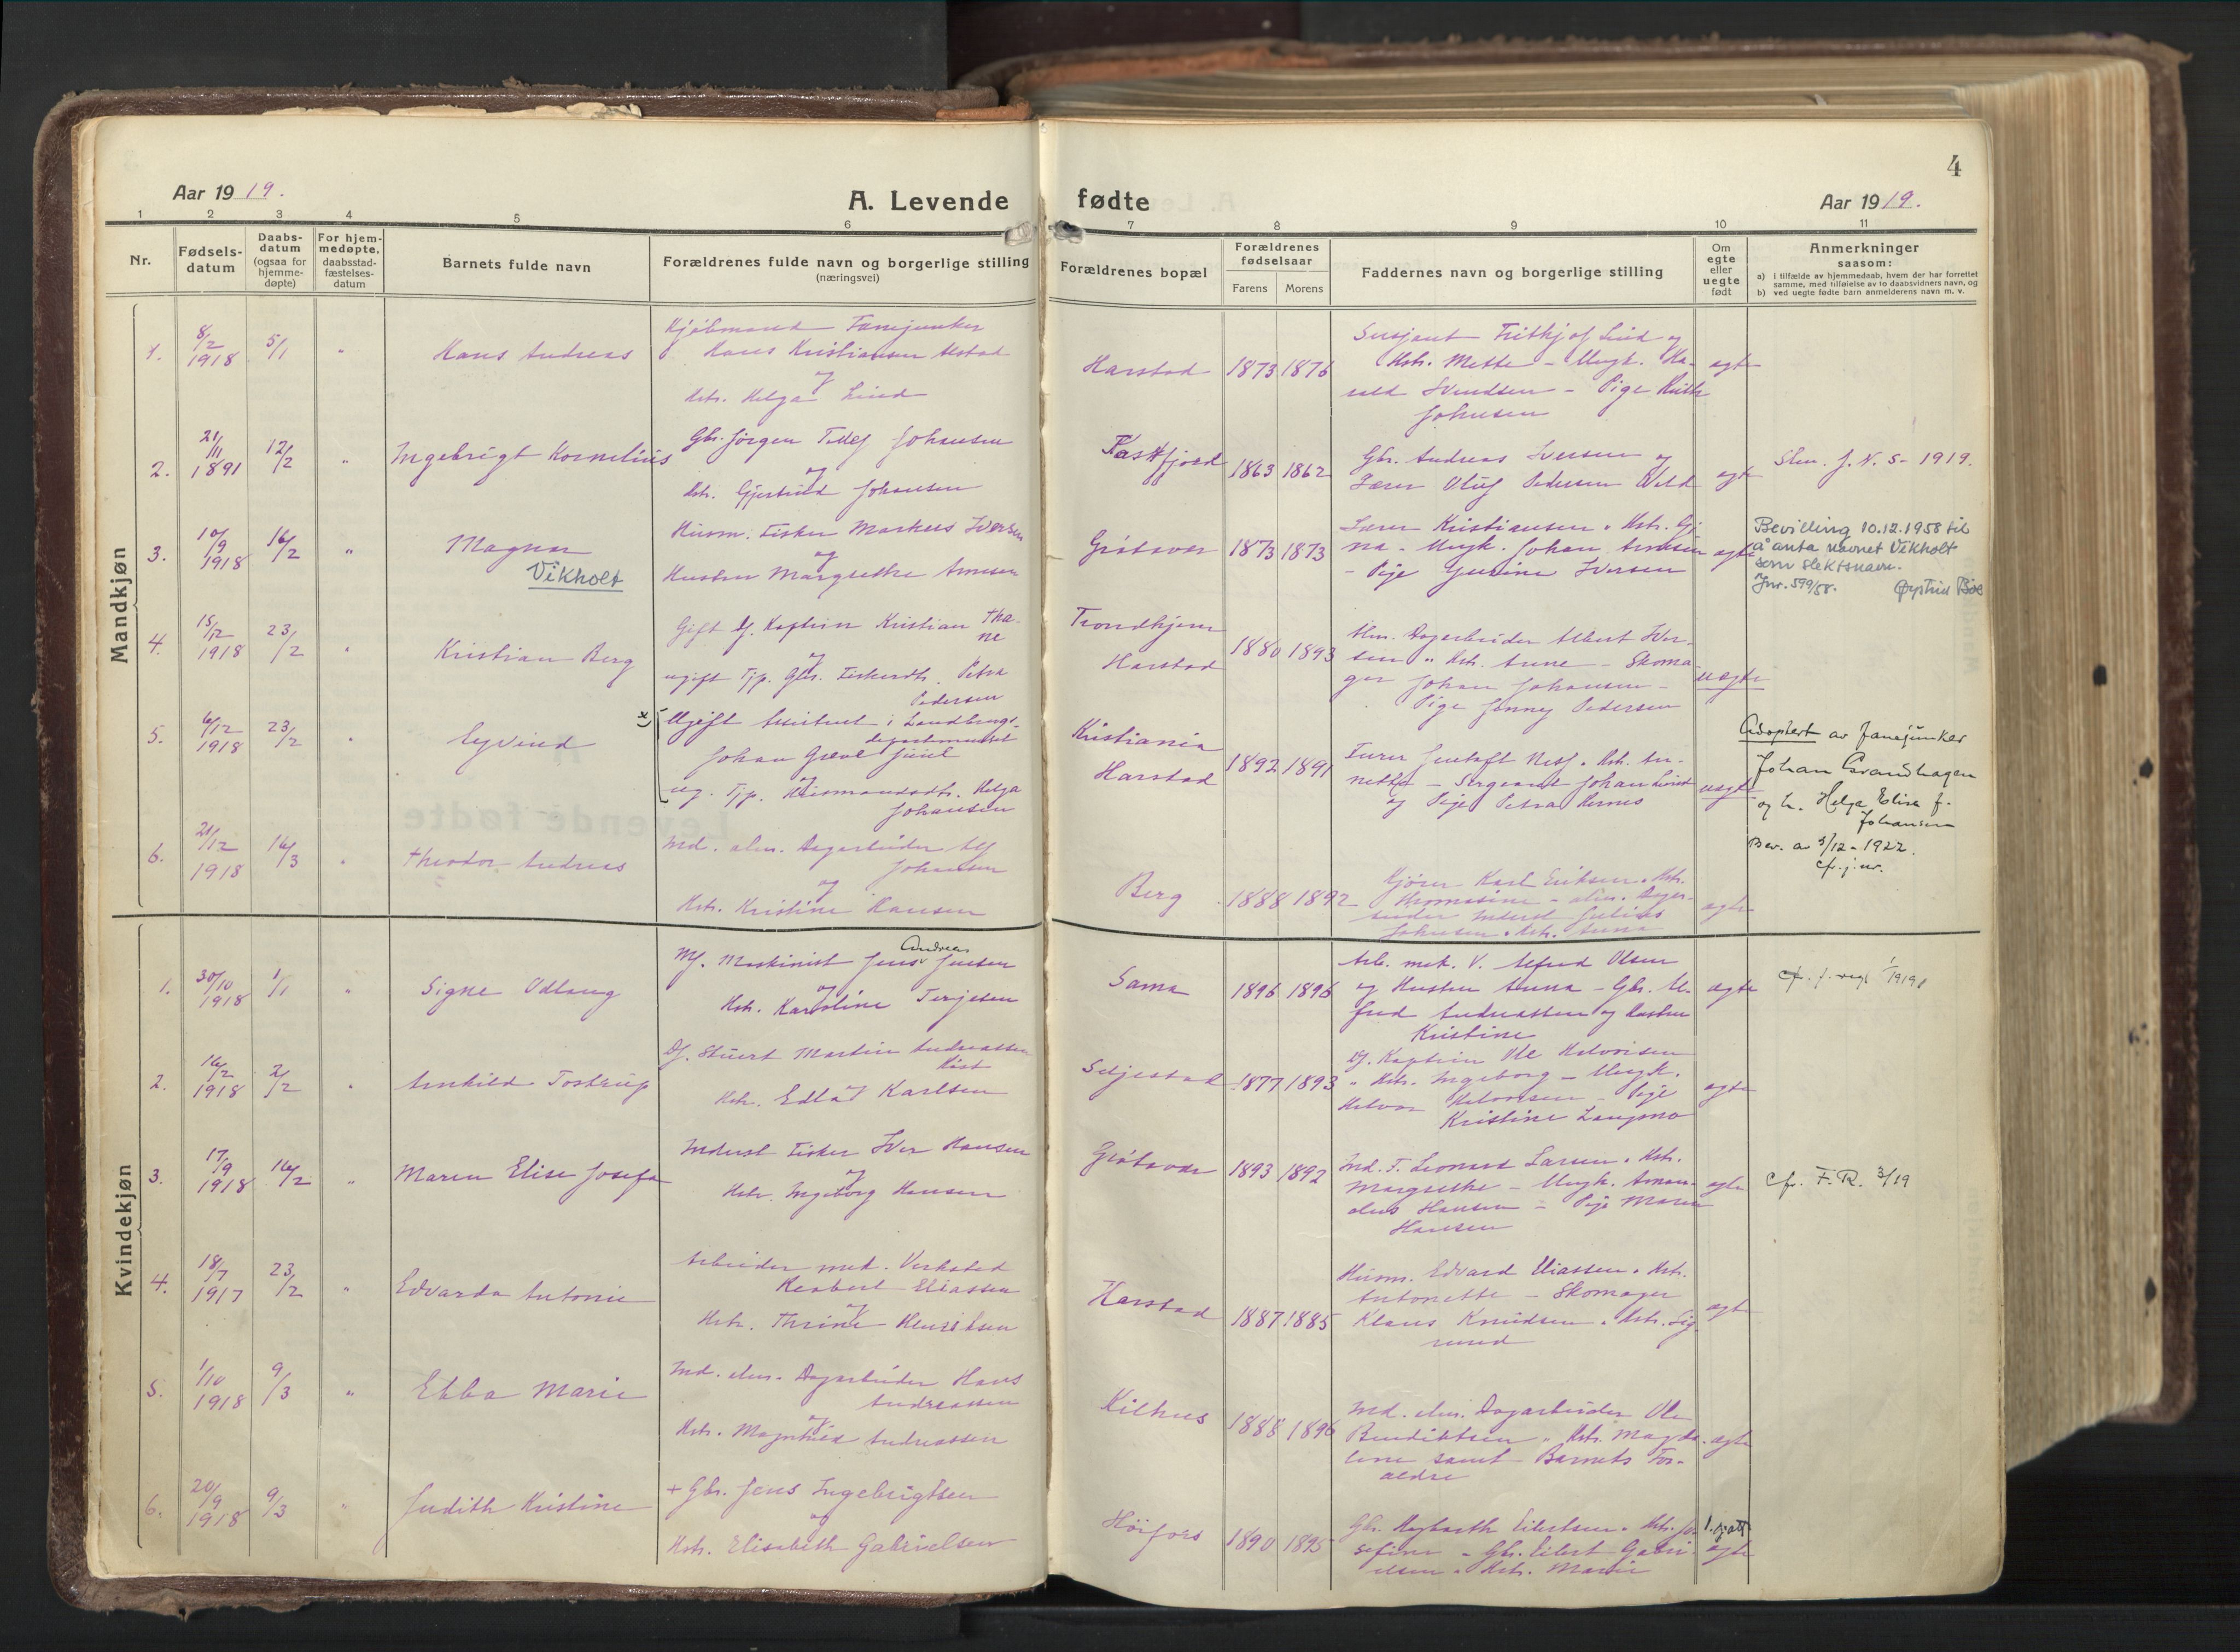 4
Aar 1919.
A. Levende fødte
Aar 1919.
1 2 3 4 5 6 7 8 9 10 11
Nr.
Fødsels-
datum
Daabs-
datum
(ogsaa for
hjemme-
døpte)
For hjem-
medøpte,
daabsstad-
fæstelses-
datum
Barnets fulde navn
Forældrenes fulde navn og borgerlige stilling
(næringsvei)
Forældrenes bopæl
Forældrenes
fødselsaar
Farens Morens
Faddernes navn og borgerlige stilling
Om
egte
eller
uegte
født
Anmerkninger
saasom:
a) i tilfælde av hjemmedaab, hvem der har forrettet
samme, med tilføielse av to daabsvidners navn, og
b) ved uegte fødte barn anmelderens navn m. v.
Mandkjøn
1. 8/2 1918 5/1 " Hans Andreas
Kjøbmand Fanejunker
Hans Kristiansen
og
Hstr. Helga Lind
Harstad 1873 1876
Sersjant Frithjof Lind og
Hstr. Mette - Ungk. Ha-
rald Svendsen - Pige Ruth
Johnsen
egte
2. 21/11 1891 12/2 " Ingebrigt Kornelius
Gbr. Jørgen Johansen
og
Hstr. Gjertrud Johansen
Kastfjord 1863 1862
Gbr. Andreas Iversen og
Lærer Oluf Pedersen
egte
J. N. 5 - 1919.
3. 10/9 1918 16/2 " Magnar
Vikholt
Husm. Fisker Markus Iversen
og
Hustru Margrethe Arnesen
Grøtavær 1873 1873
Kristiansen . Hstr. Gj
na - Ungk. Johan Arnesen
- Pige Gurine Iversen
egte
Bevilling 10.12.1958 til
å anta navnet Vikholt
som slektsnavn.
Jnr. 599/58. Øystein Bøe
4. 15/12 1918 23/2 " Kristian Berg
Gift Df. Kaptein Kristian Tha-
ne
og
ugift Tjp. Gbr. Fiskerdtr. Petra
Pedersen
Trondhjem
Harstad
1880 1893
Alm. Dagarbeider Albert Iver-
sen " Hstr. Anne - Skoma-
ger Johan Johansen -
Pige Jenny Pedersen
uegte
5. 6/12 1918 23/2 " Eyvind
x) Ugift Assistent i Landbrugs-
departementet
Johan Greve Juul
og
ug. Tjp. Husmandsdtr. Helga
Johansen
Kristiania
Harstad
1892 1891
Hstr. An-
netta - Sergeant Johan Lind
og Pige Petra Hernes
uegte
Adoptert av fanejunker
Johan Brandhagen
og h. Helga Elise f.
Johansen
Bev. av 3/12 - 1922.
cfr. j.nr.
6. 21/12 1918 16/3 " Theodor Andreas
Ind. alm. Dagarbeider Alf
Johansen
og
Hstr. Kristine Hansen
Berg 1888 1892
Kjører Karl Eriksen . Hstr.
Thomasine - alm. Dagar-
beider Inderst Julius
Johnsen . Hstr. Anna
egte
Kvindekjøn
1. 30/10 1918 1/1 " Signe Odlaug
Andreas
Mf. Maskinist Jens Jensen
og
Hstr. Karoline Terjesen
Sama 1896 1896
Arb. mek. V. Alfred Olsen
og Hustru Anna - Gbr. Al-
fred Andreassen og Hustru
Kristine
egte
cfr. f. reg. 1/1919
2. 16/2 1918 2/2 " Arnhild Tostrup
Df. Stuert Martin Andreassen
Hstr. Edla Karlsen
Seljestad 1877 1893
Df. Kaptein Ole Halvorsen
" Hstr. Ingeborg - Ungk.
Halvor Halvorsen - Pige
Kristine Langmo
egte
3. 17/9 1918 16/2 " Maren Elise Josefa
Inderst Fisker Iver Hansen
og
Hstr. Ingeborg Hansen
Grøtavær 1893 1892
Ind. F. Leonard Larsen . Hstr.
Margrethe - Ungk. Aman-
dus Hansen - Pige Maren
Hansen
egte
cfr. F.R. 3/19
4. 18/7 1917 23/2 " Edvarda Antonie
Arbeider mek. Verksted
Herbert Eliassen
og
Hstr. Thrine Henriksen
Harstad 1887 1885
Husm. Edvard Eliassen . Hstr.
Antonette - Skomager
Klaus Knudsen . Hstr. Sig-
rund
egte
5. 1/10 1918 9/3 " Ebba Marie
Ind. alm. Dagarbeider Hans
Andreassen
og
Hstr. Magnhild Andreassen
Kilhus 1888 1896
Ind. alm. Dagarbeider Ole
Bendiktsen " Hstr. Magda-
lene samt Barnets For-
ældre
egte
6. 20/9 1918 9/3 " Judith Kristine
+ Gbr. Jens Ingebrigtsen
og
Hstr. Elisabeth Gabrielsen
Høifors 1890 1895
Gbr. Hagbarth Eilertsen . Hstr. Jo-
sefine - Gbr. Eilert Gabri-
elsen . Hstr. Marie
egte